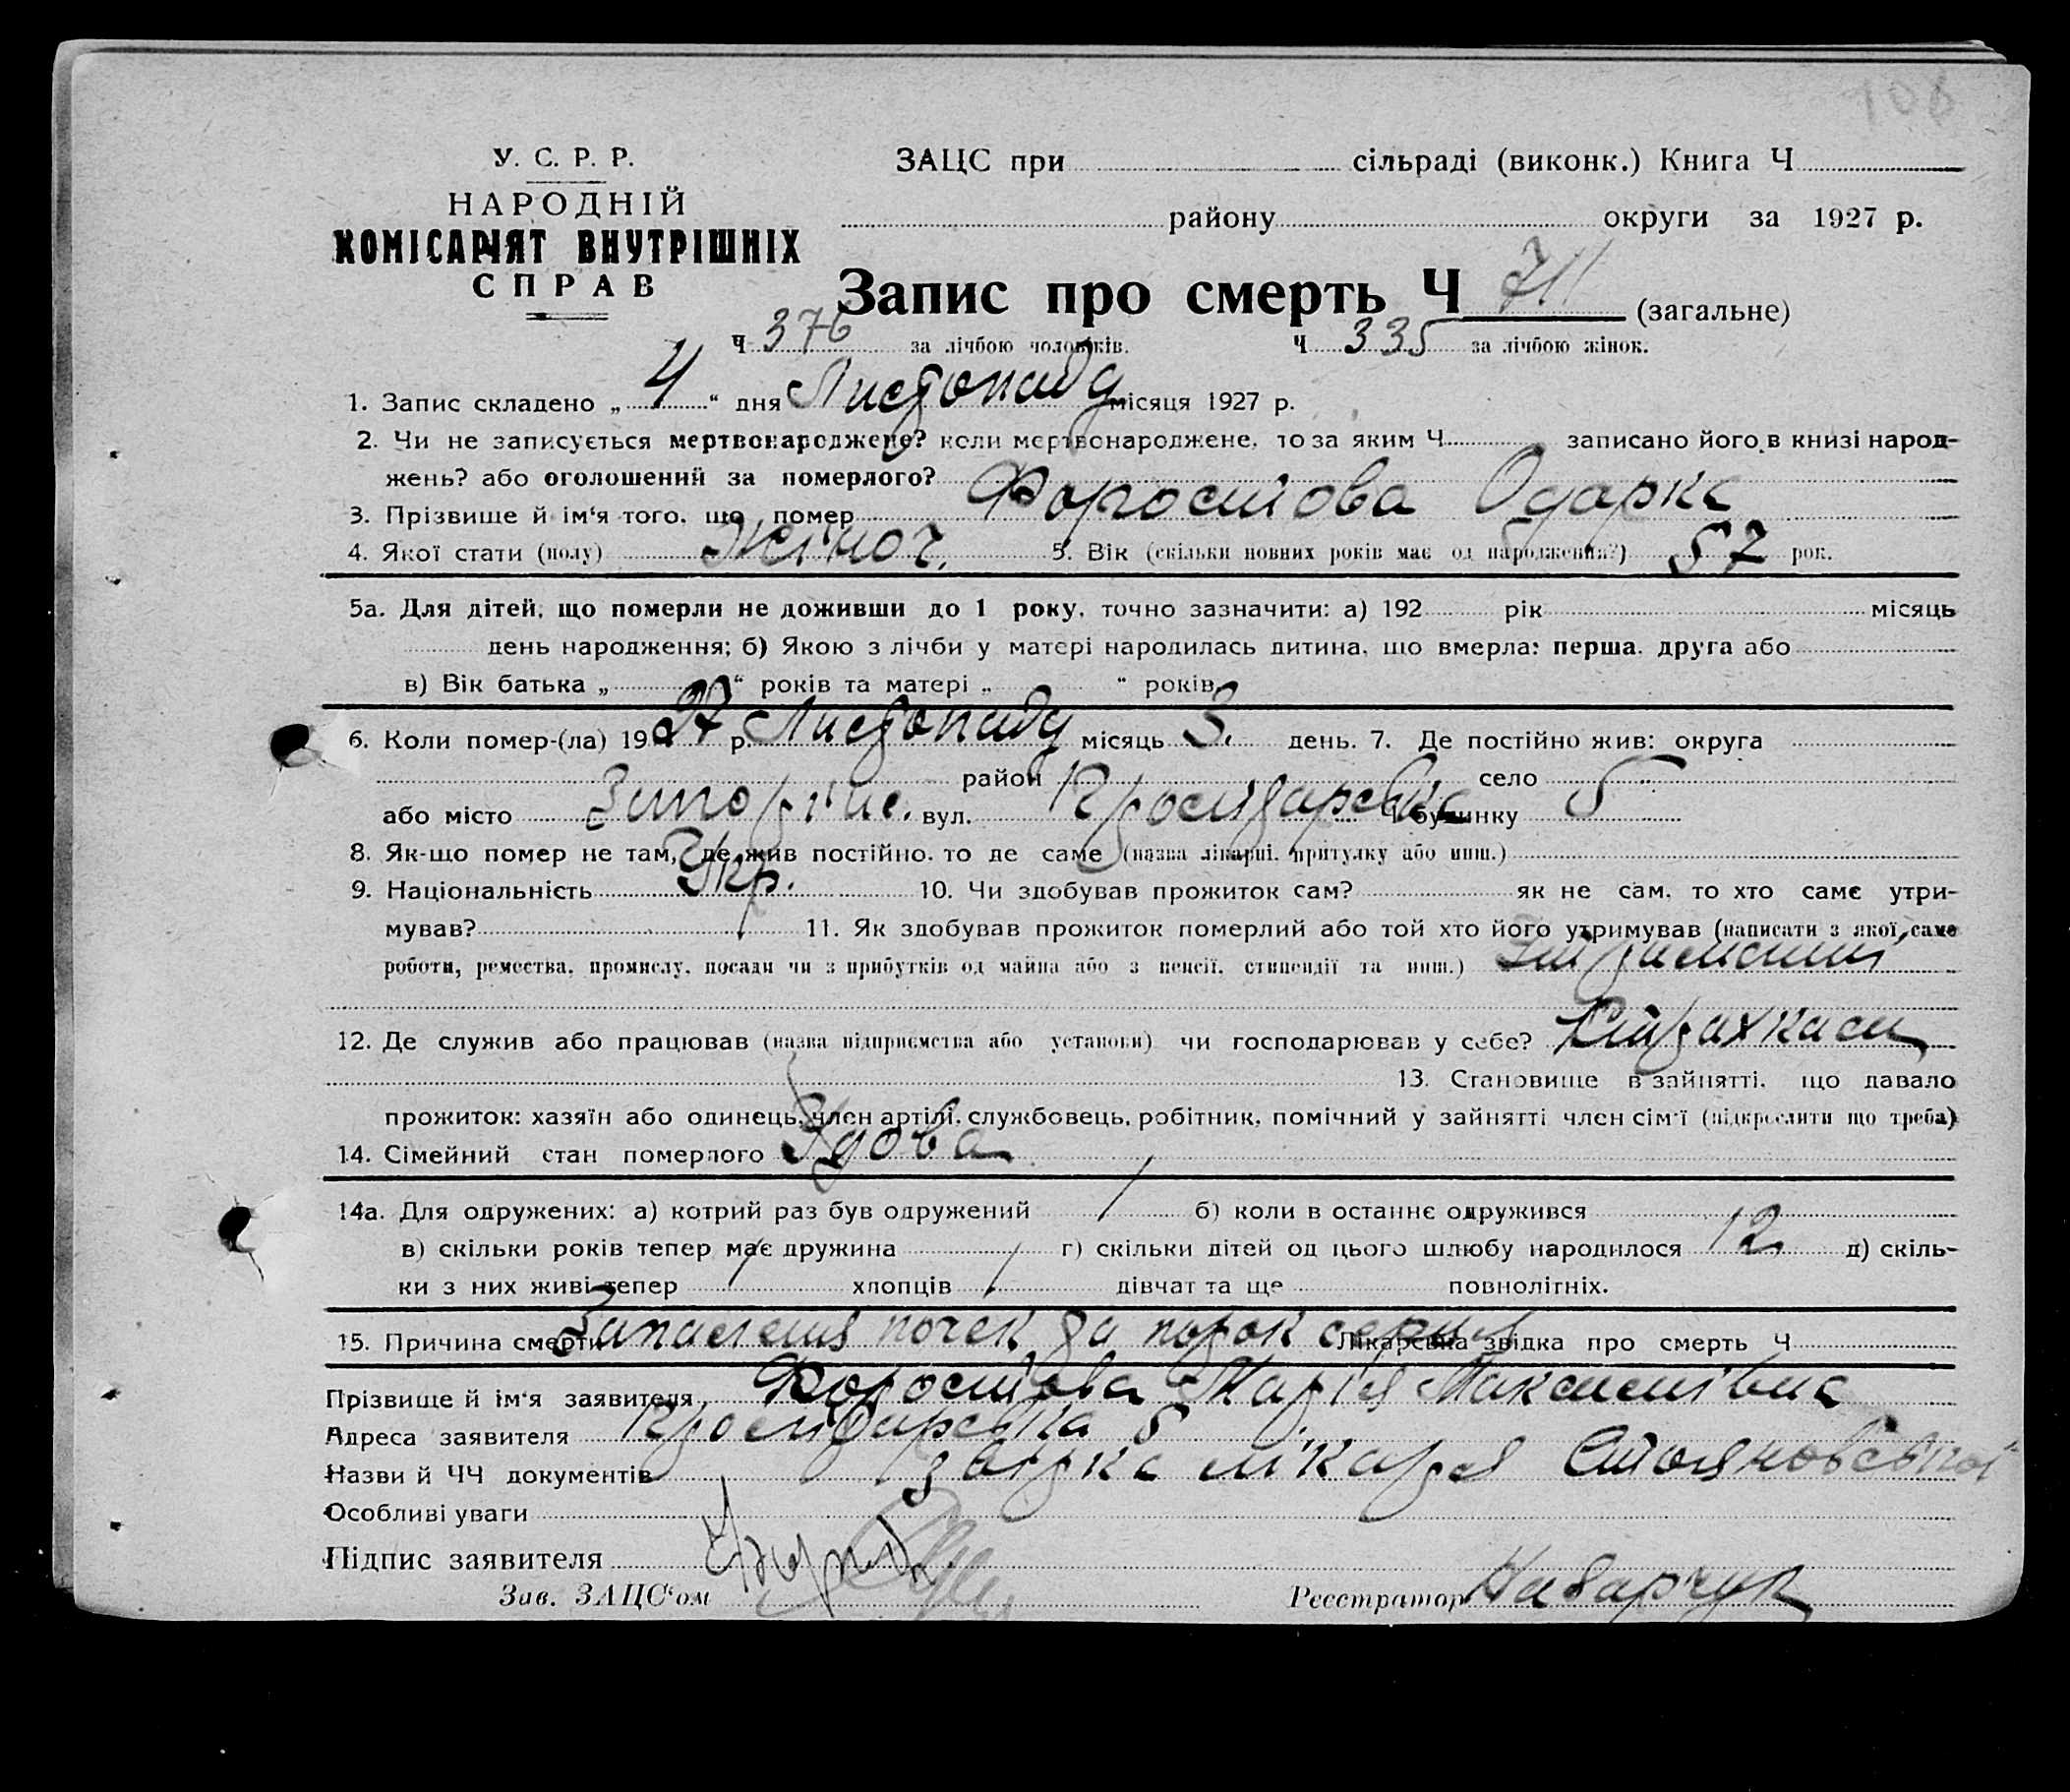 108
У. С. Р. Р.
НАРОДНІЙ
КОМІСАРІЯТ ВНУТРІШНІХ
СПРАВ
ЗАЦС при сільраді (виконк.) Книга Ч
району округи за 1927 р.
Запис про смерть Ч 711 (загальне)
Ч 376 за лічбою чоловіків. Ч 335 за лічбою жінок.
1. Запис складено „ 4 “ дня Листопаду місяця 1927 р.
2. Чи не записується мертвонароджене? коли мертвонароджене, то за яким Ч записано його в книзі народ-
жень? або оголошений за померлого?
3. Прізвище й ім‘я того, що помер Форостова Одарка
4. Якої стати (полу) Жіноч. 5. Вік (скільки повних років має од народження?) 57 рок.
5а. Для дітей, що померли не доживши до 1 року, точно зазначити: а) 192 рік місяць
день народження; б) Якою з лічби у матері народилась дитина, що вмерла: перша, друга або
в) Вік батька „ “ років та матері „ “ років
6. Коли помер-(ла) 1927 р. Листопаду місяць 3. день. 7. Де постійно жив: округа
район село
або місто вул. Ч будинку 5
8. Як-що помер не там, де жив постійно, то де саме (назва лікарні, притулку або инш.)
9. Національність Укр. 10. Чи здобував прожиток сам? як не сам, то хто саме утри-
мував? 11. Як здобував прожиток померлий або той хто його утримував (написати з якої саме
роботи, ремества, промислу, посади чи з прибутків од майна або з пенсії, стипендії та инш.)
12. Де служив або працював (назва підприємства або установи) чи господарював у себе? Страхкаси
13. Становище в зайнятті, що давало
прожиток: хазяїн або одинець, член артілі, службовець, робітник, помічний у зайнятті член сім‘ї (підкреслити що треба)
14. Сімейний стан померлого Удова
14а. Для одружених: а) котрий раз був одружений б) коли в останнє одружився
в) скільки років тепер має дружина г) скільки дітей од цього шлюбу народилося 12 д) скіль-
ки з них живі тепер хлопців дівчат та ще повнолітніх.
15. Причина смерти почек да порок серця Лікарська звідка про смерть Ч
Прізвище й ім‘я заявителя Форостова Марія Максимівна
Адреса заявителя 5
Назви й ЧЧ документів звідка лікаря Стояновської
Особливі уваги
Підпис заявителя
Зав. ЗАЦС‘ом Реєстратор